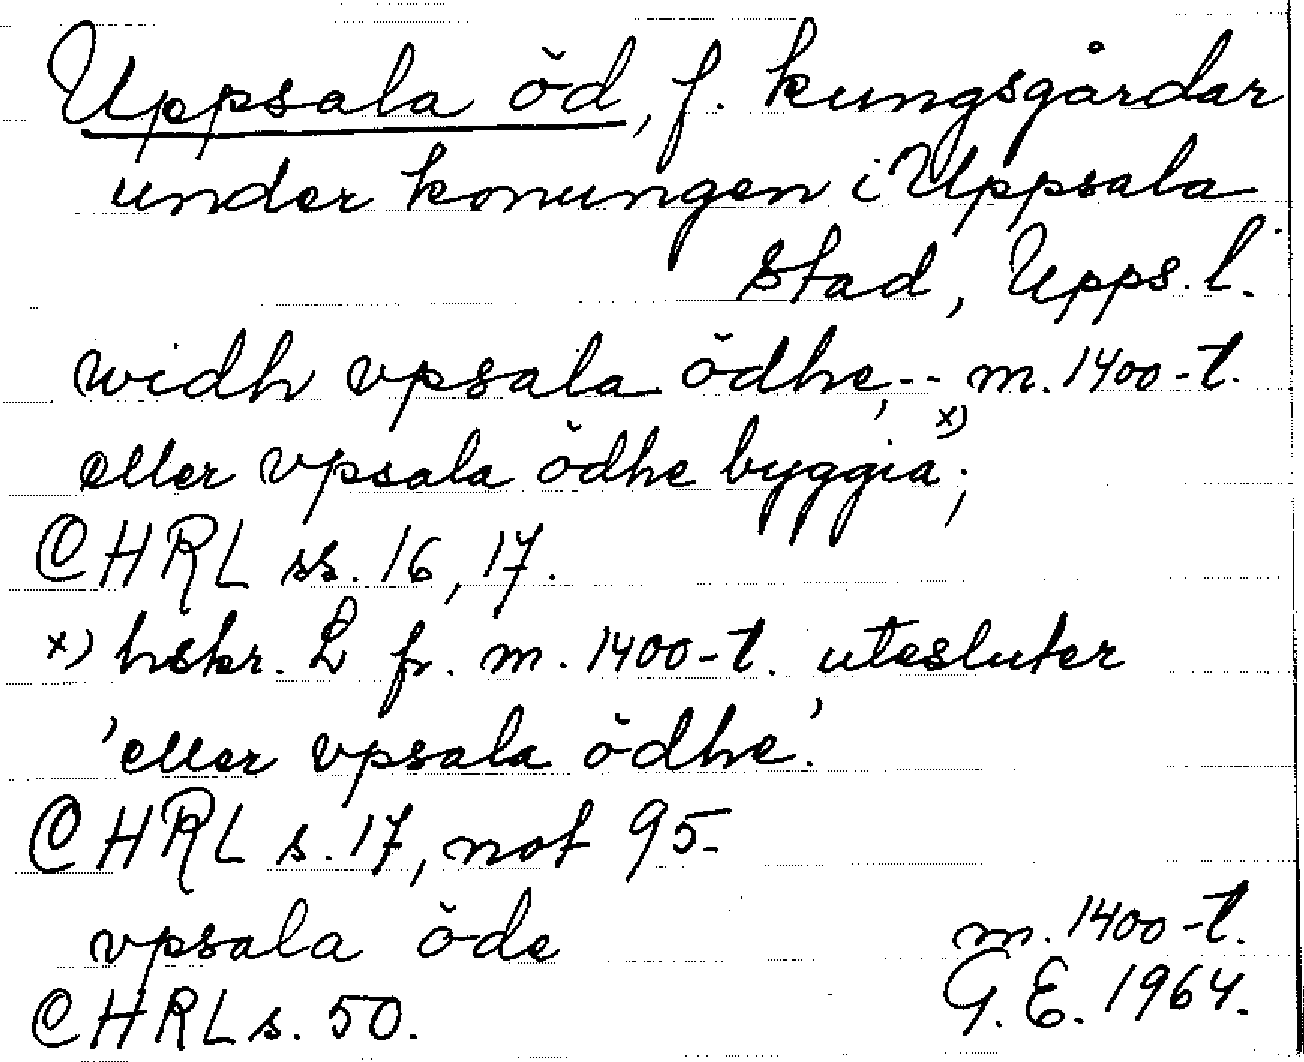 Uppsala öd, f. kungsgårdar
under konungen i Uppsala
stad, Upps. l.
widh vpsala ödhe, -- m. 1400-t.
eller vpsala ödhe byggia x);
CHRL ss. 16, 17.
x) hskr. L fr. m. 1400-t. utesluter
'eller vpsala ödhe.'
CHRL s. 17, not 95.
vpsala öde m. 1400-t.
CHRL s. 50. G. E. 1964.